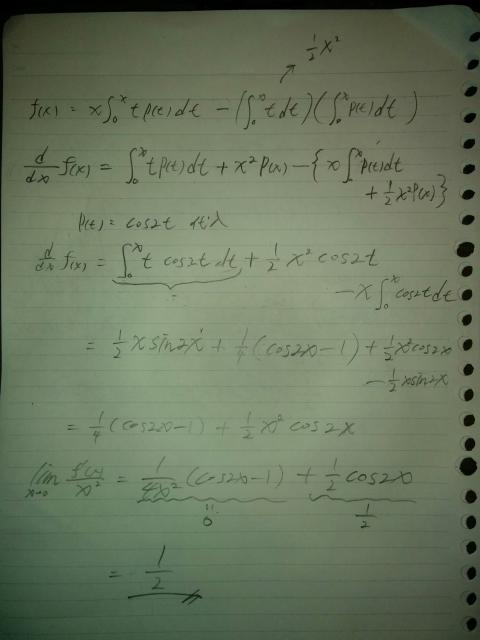 ½x²
f(x) = x∫₀ˣ t p(t) dt − (∫₀ˣ t dt)(∫₀ˣ p(t) dt)
d/dx f(x) = ∫₀ˣ t p(t) dt + x² p(x) − {x∫₀ˣ p(t) dt
+ ½x² p(x)}
p(t) = cos2t 代入
d/dx f(x) = ∫₀ˣ t cos2t dt + ½ x² cos2t
− x∫₀ˣ cos2t dt
= ½ x sin2x + ¼ (cos2x−1) + ½x² cos2x
− ½x sin2x
= ¼ (cos2x−1) + ½ x² cos2x
lim x→0 f'(x)/x² = 1/4x² (cos2x−1) + ½ cos2x
0 ½
= ½